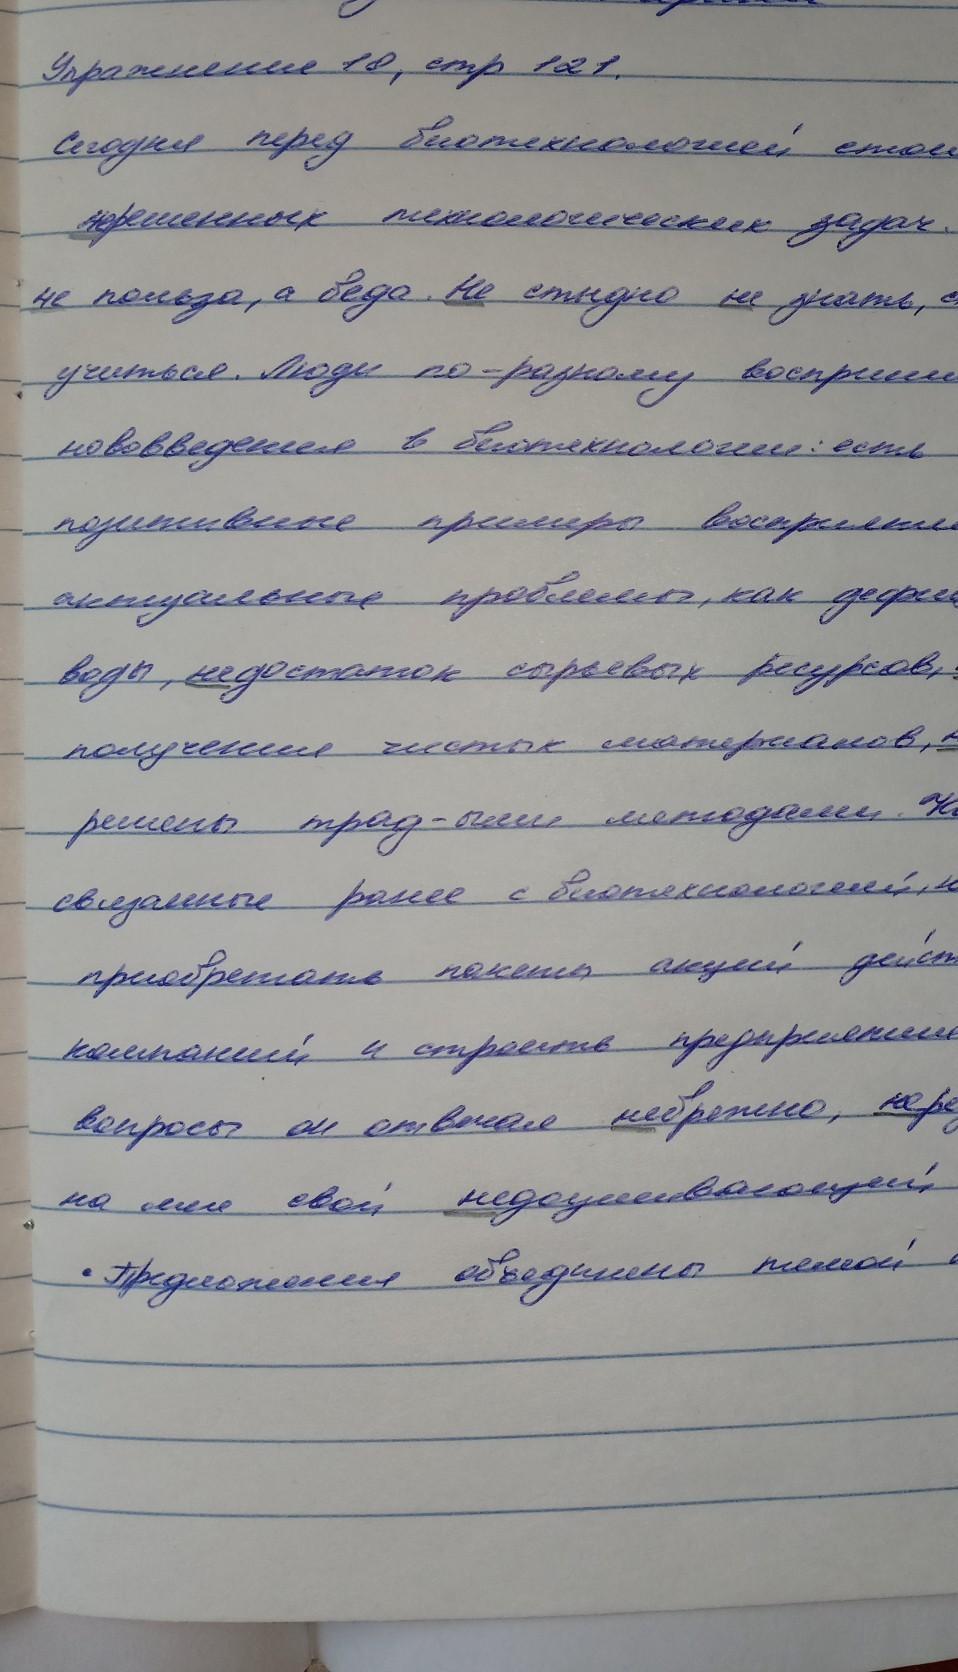 Упражнение 18, стр 121.
Сегодня перед биотехнологией стои
нерешенных технологических задач.
не польза, а беда. Не стыдно не знать, с
учиться. Люди по-разному восприни
нововведения в биотехнологии: есть
позитивные примеры восприяти
актуальные проблемы, как дефи
воды, недостаток сырьевых ресурсов,
получения чистых материалов, н
решены трад-ыми методами. Не
связанные ранее с биотехнологией, н
приобретать пакеты акций дейст
компаний и строить предприятие
вопросы он отвечал небрежно, не
на мне свой недоумевающий
• Предложения объединены темой